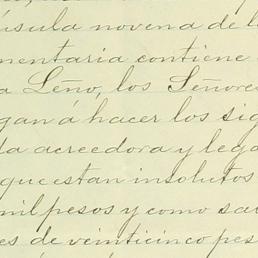 úsula novena de l
mentaria contiene
a Leño, los Señore
gan á hacer los sig
da acreedora y lega
que estan insolutos
mil pesos y como sa
es de veinticinco pes